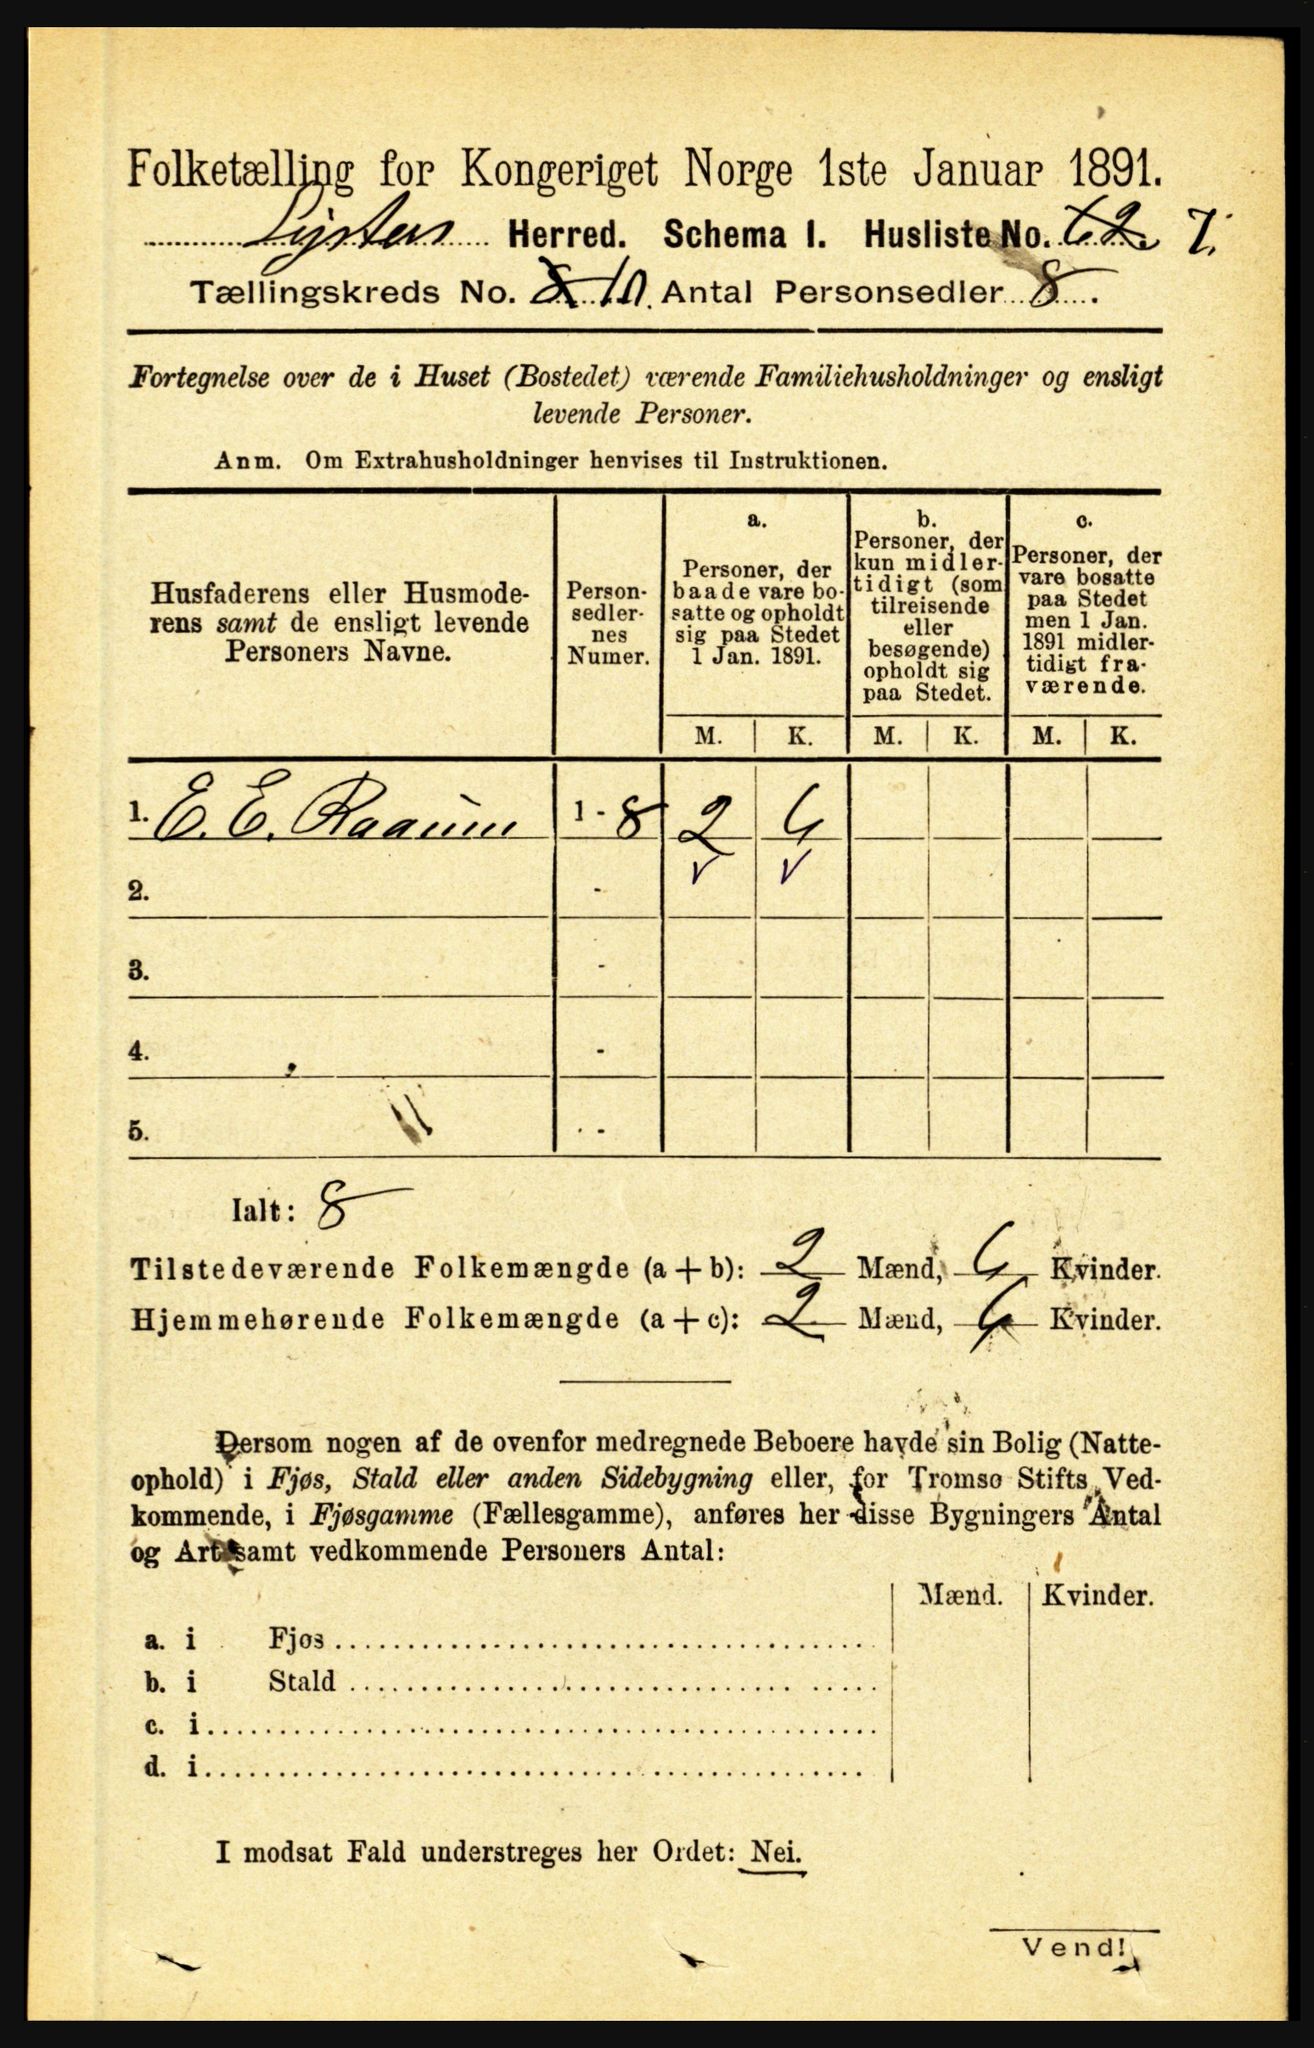 Folketælling for Kongeriget Norge 1ste Januar 1891.
Lyster Herred. Schema I. Husliste No. 62. 7.
Tællingskreds No. 8 10. Antal Personsedler 8.
Fortegnelse over de i Huset (Bostedet) værende Familiehusholdninger og ensligt
levende Personer.
Anm. Om Extrahusholdninger henvises til Instruktionen.
Husfaderens eller Husmode-
rens samt de ensligt levende
Personers Navne.
Person-
sedler-
nes
Numer.
a.
Personer, der
baade vare bo-
satte og opholdt
sig paa Stedet
1 Jan. 1891.
b.
Personer, der
kun midler-
tidigt (som
tilreisende
eller
besøgende)
opholdt sig
paa Stedet.
c.
Personer, der
vare bosatte
paa Stedet
men 1 Jan.
1891 midler-
tidigt fra-
værende.
M. K. M. K. M. K.
1. E. E. Raaum 1 - 8 2 6
2. -
3. -
4. -
5. -
Ialt: 8
Tilstedeværende Folkemængde (a + b): 2 Mænd, 6 Kvinder.
Hjemmehørende Folkemængde (a + c): 2 Mænd, 6 Kvinder.
Dersom nogen af de ovenfor medregnede Beboere havde sin Bolig (Natte-
ophold) i Fjøs, Stald eller anden Sidebygning eller, for Tromsø Stifts Ved-
kommende, i Fjøsgamme (Fællesgamme), anføres her disse Bygningers Antal
og Art samt vedkommende Personers Antal:
Mænd. Kvinder.
a. i Fjøs
b. i Stald
c. i
d. i
I modsat Fald understreges her Ordet: Nei.
Vend!